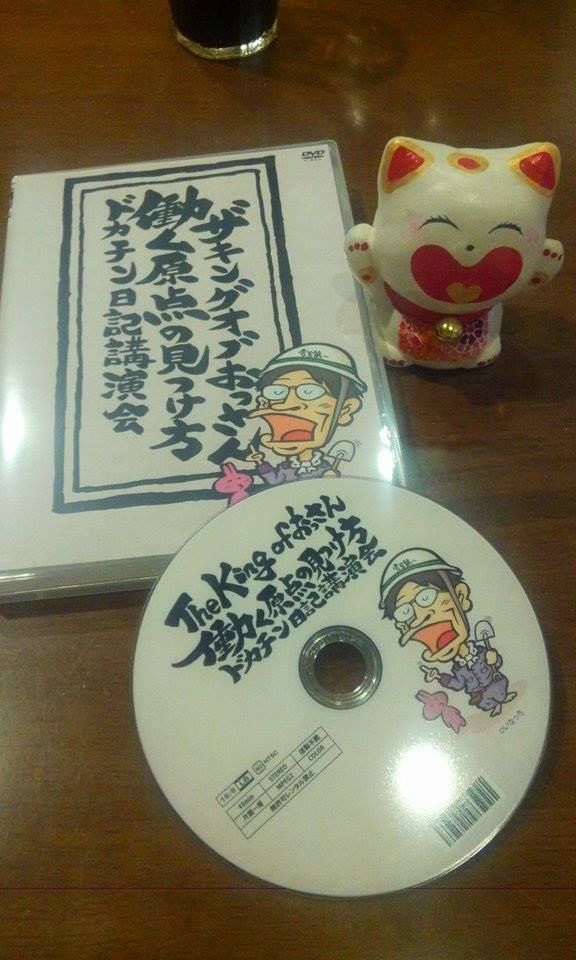 DVD
VIDEO
ザキングオブおっさん
働く原点の見つけ方
ドカチン日記講演会
安全第一
The King of おっさん
働く原点の見つけ方
ドカチン日記講演会
安全第一
©いなっち
16:9 LB NTSC
45min STEREO 複製不能
片面一層 MPEG2 COLOR
無許可レンタル禁止